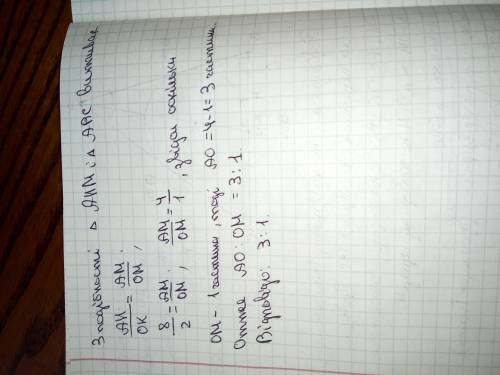 З подібності △ AHM і △ ABC випливає
AH/OK = AM/OM,
8/2 = AM/OM, AM/OM = 4/1, звідси оскільки
OM - 1 частина, тоді AO = 4-1 = 3 частини.
Отже AO : OM = 3:1.
Відповідь: 3:1.